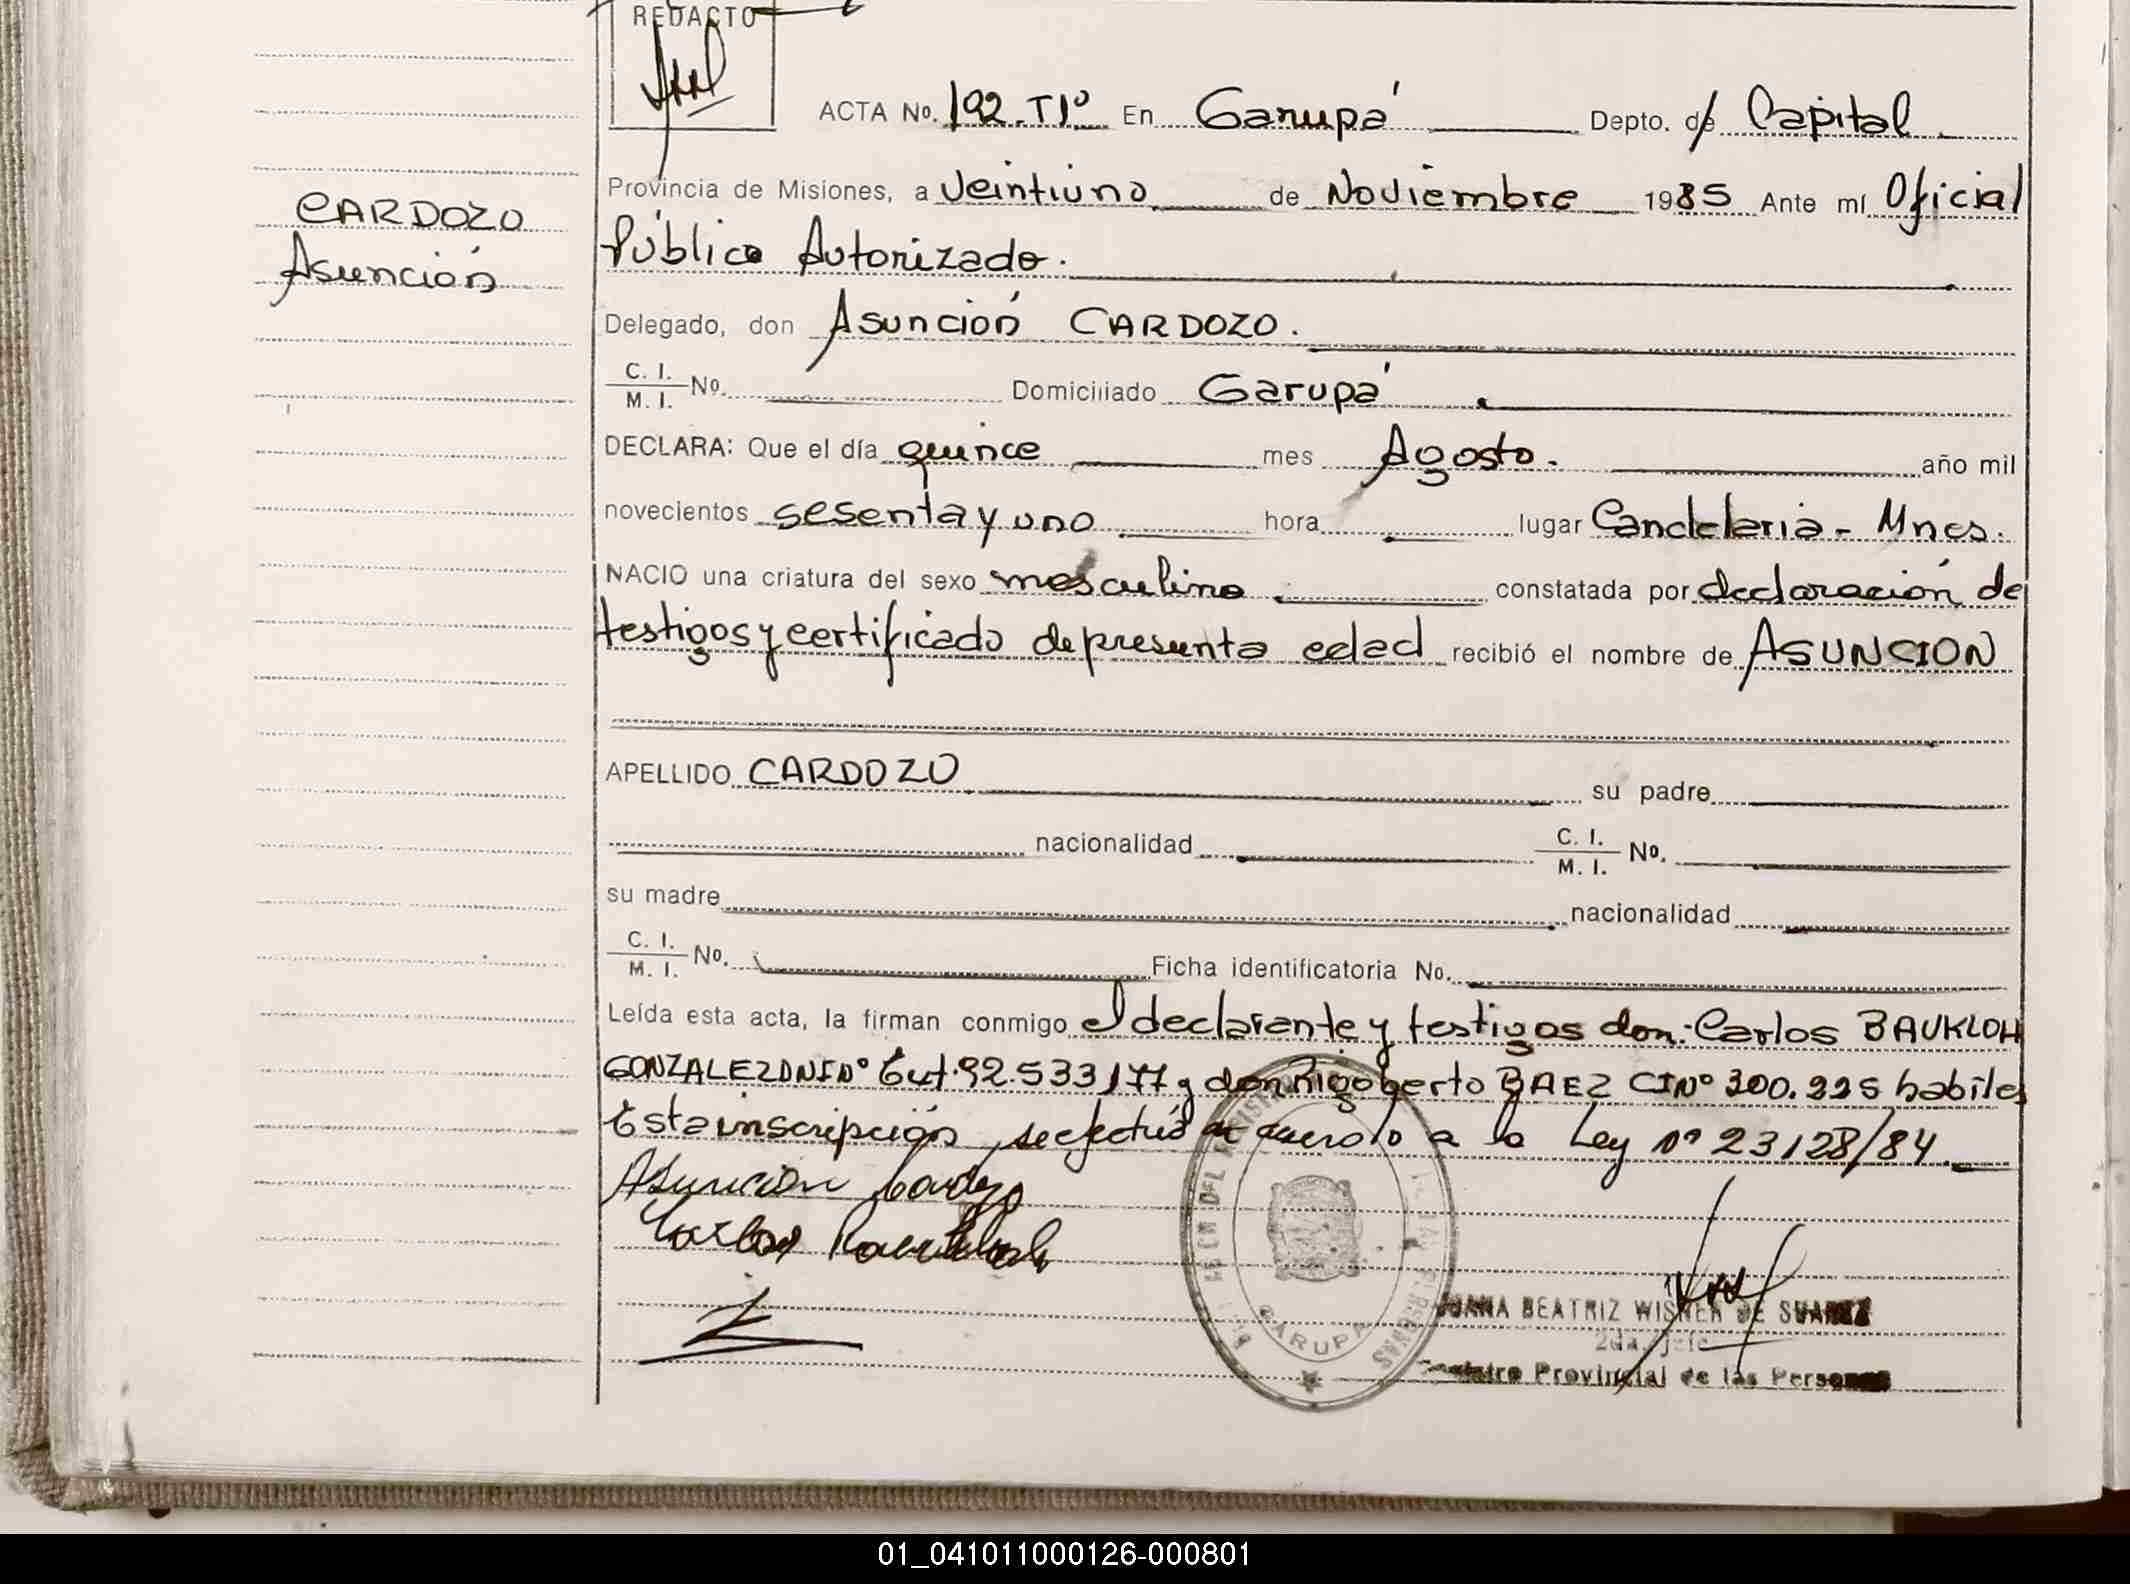 REDACTO
ACTA No. 192. T1º En Garupá Depto. de Capital
Provincia de Misiones, a Veintiuno de Noviembre 1985 Ante mI Oficial
Público Autorizado.
CARDOZO
Asunción
Delegado, don Asunción CARDOZO.
C. I.
M. I. No. Domiciliado Garupá
DECLARA: Que el día quince mes Agosto. año mil
novecientos sesenta y uno hora lugar Candelaria - Mnes.
NACIO una criatura del sexo masculino constatada por declaración de
testigos y certificado de presunta edad recibió el nombre de ASUNCION
APELLIDO CARDOZO su padre
nacionalidad C. I.
M. I. No.
su madre nacionalidad
C. I.
M. I. No. Ficha identificatoria No.
Leída esta acta, la firman conmigo el declarante y testigos don: Carlos BAUKLOH
GONZALEZ DNI Nº Ext. 92.533177 y don Rigoberto BAEZ CI Nº 300.225 habiles
Esta inscripción se efectuó de acuerdo a la Ley Nº 23128/84.
Asunción Cardozo
Carlos Baukloh
GARUPA
JUANA BEATRIZ WISNER DE SUAREZ
2da. jefe
Registro Provincial de las Personas
01_041011000126-000801